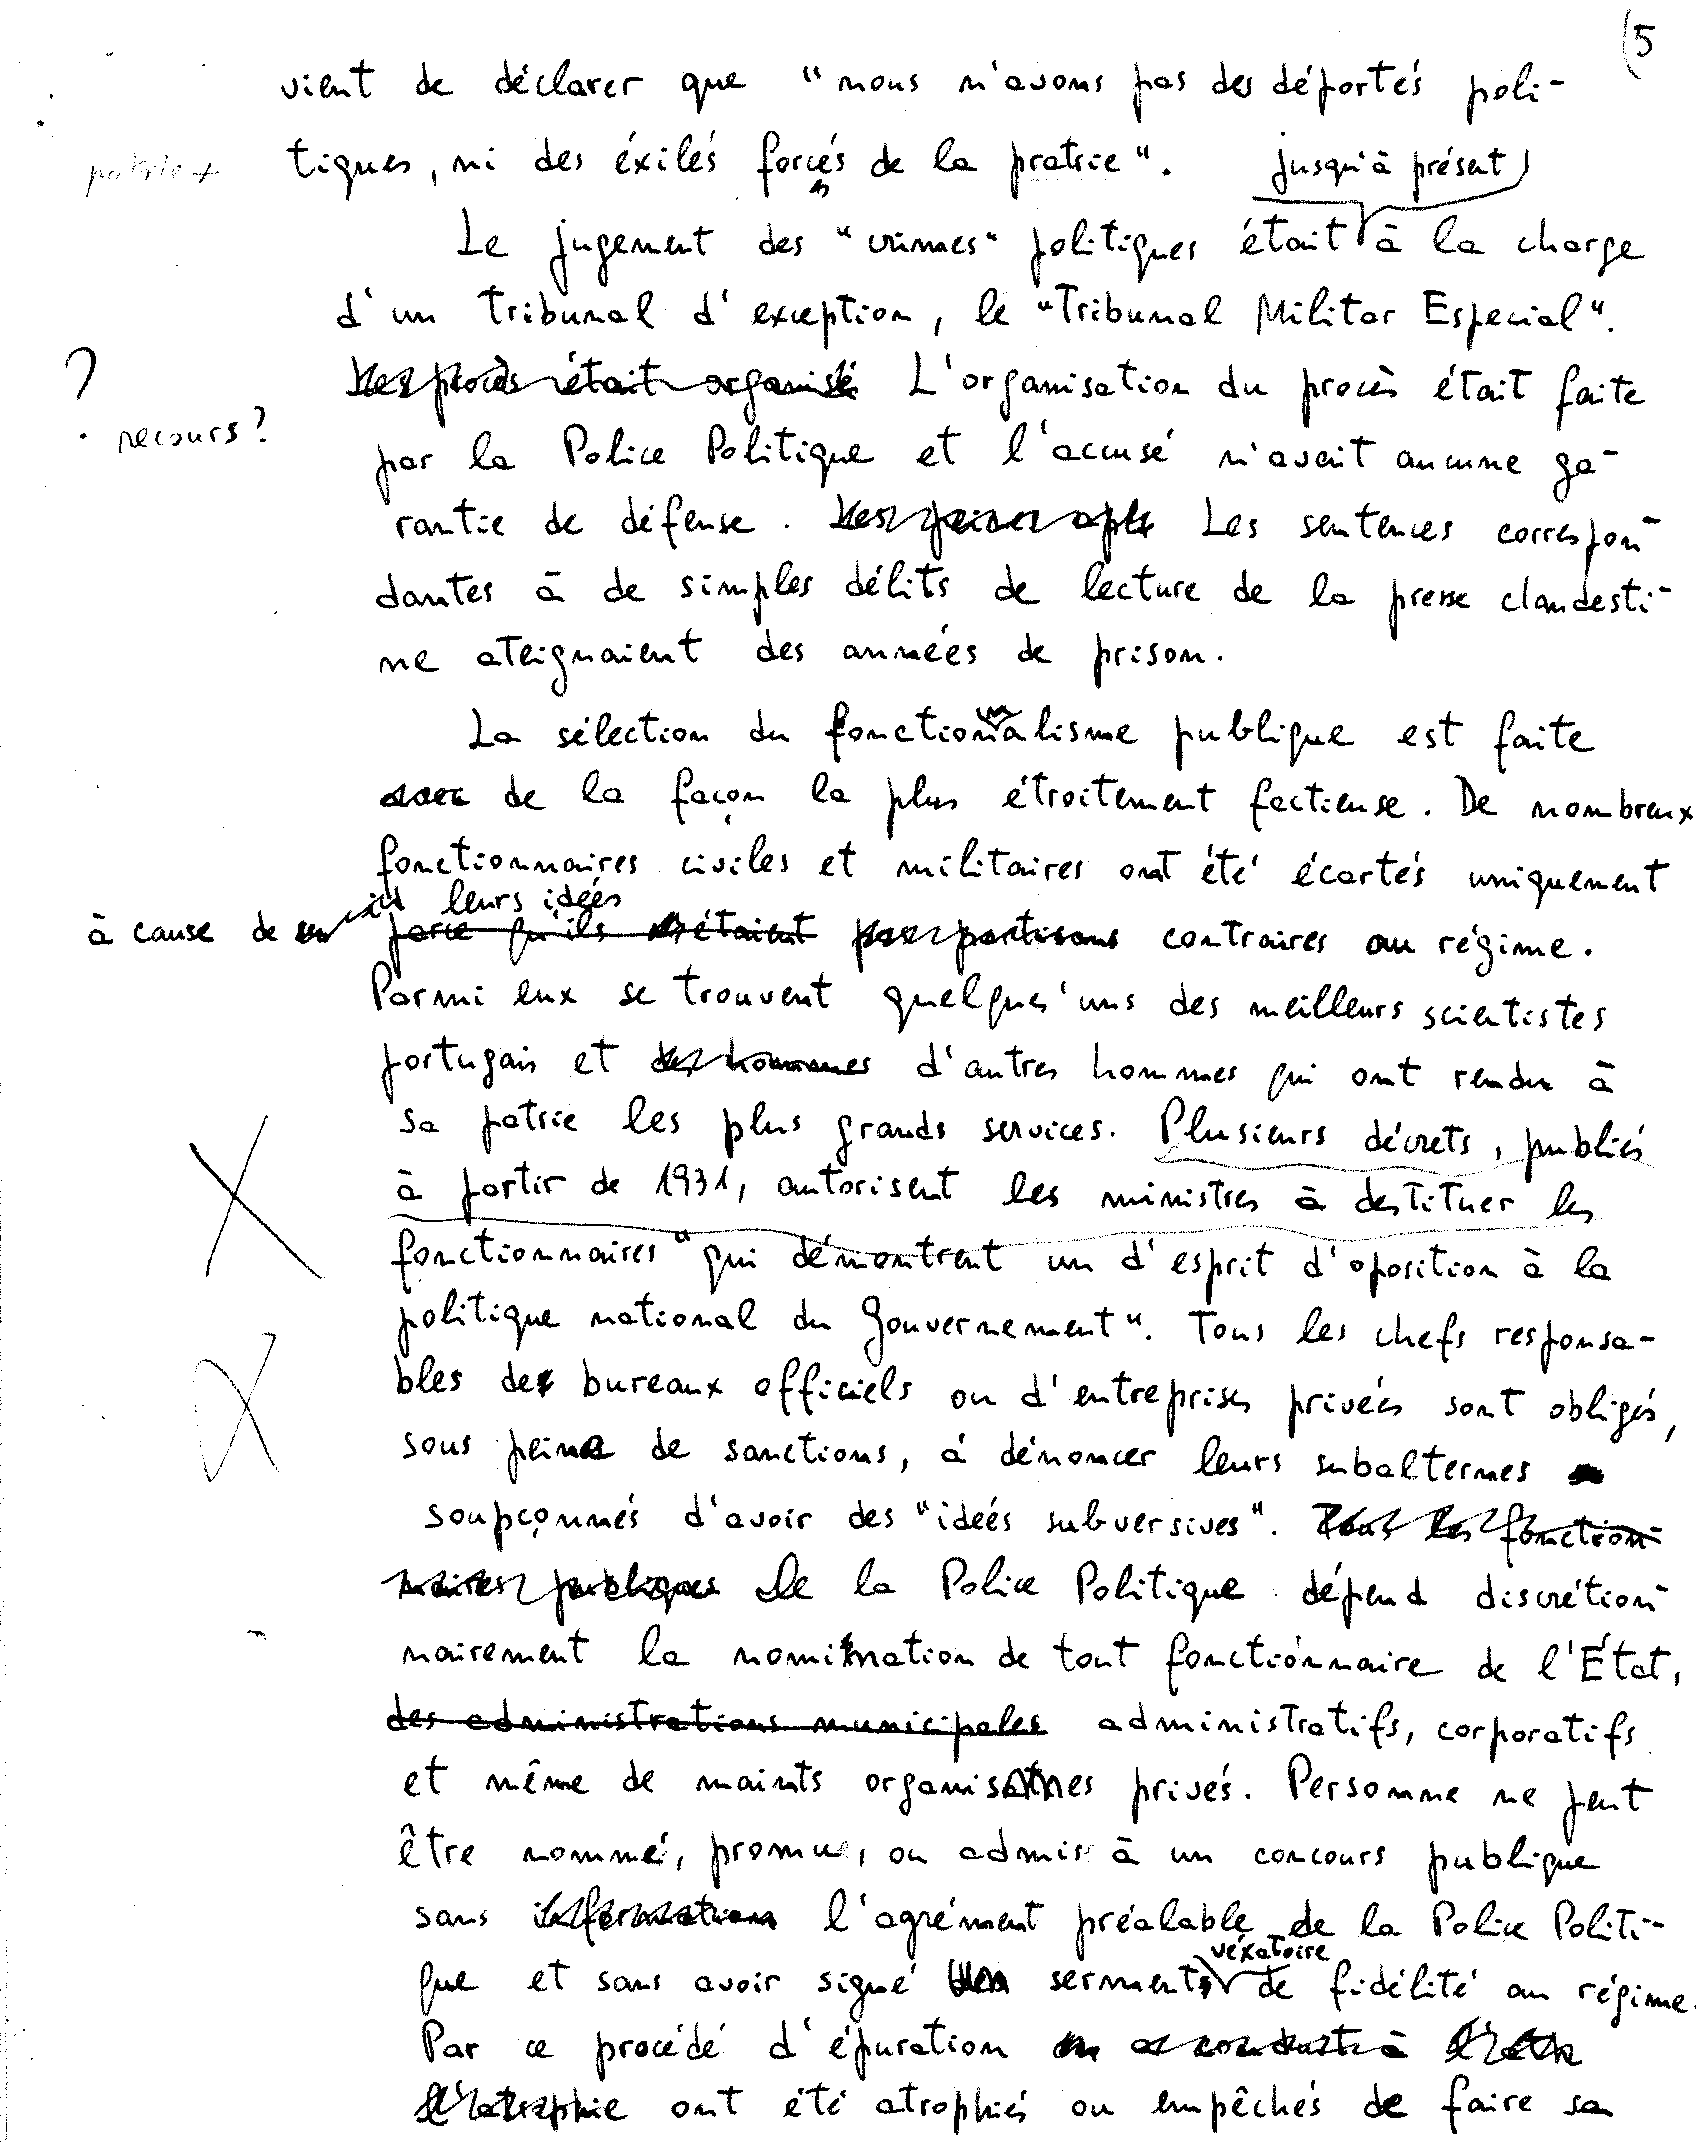 (5
vient de déclarer que "nous n'avons pas des déportés poli-
patrie x
tiques, ni des éxilés forcés de la pratrie".
jusqu'à présent
Le jugement des "crimes" politiques était à la charge
d'un tribunal d'exception, le "Tribunal Militar Especial".
?
Les procès était organisé L'organisation du procès était faite
recours?
par la Police Politique et l'accusé n'avait aucune ga-
rantie de défense. Les peines apl Les sentences correspon-
dantes à de simples délits de lecture de la presse clandesti-
ne ateignaient des années de prison.
La sélection du fonctionnalisme publique est faite
avec de la façon la plus étroitement factieuse. De nombreux
fonctionnaires civiles et militaires ont été écartés uniquement
leurs idées
à cause de parce qu'ils étaient pas partisans contraires au régime.
Parmi eux se trouvent quelques'uns des meilleurs scientistes
portugais et des hommes d'autres hommes qui ont rendu à
sa patrie les plus grands services. Plusieurs décrets, publiés
à partir de 1931, autorisent les ministres à destituer les
fonctionnaires "qui démontrent un d'esprit d'oposition à la
politique national du Gouvernement". Tous les chefs responsa-
bles des bureaux officiels ou d'entreprises privées sont obligés,
sous peine de sanctions, à dénoncer leurs subalternes
soupçonnés d'avoir des "idées subversives". Tous les fonction-
naires publiques De la Police Politique dépend discrétion-
nairement la nomination de tout fonctionnaire de l'État,
des administrations municipales administratifs, corporatifs
et même de maints organismes privés. Personne ne peut
être nommé, promu, ou admis à un concours publique
sans information l'agrément préalable de la Police Politi-
véxatoire
que et sans avoir signé un serment de fidélité au régime.
Par ce procédé d'épuration a conduit à
l'atrophie ont été atrophiés ou empêchés de faire sa